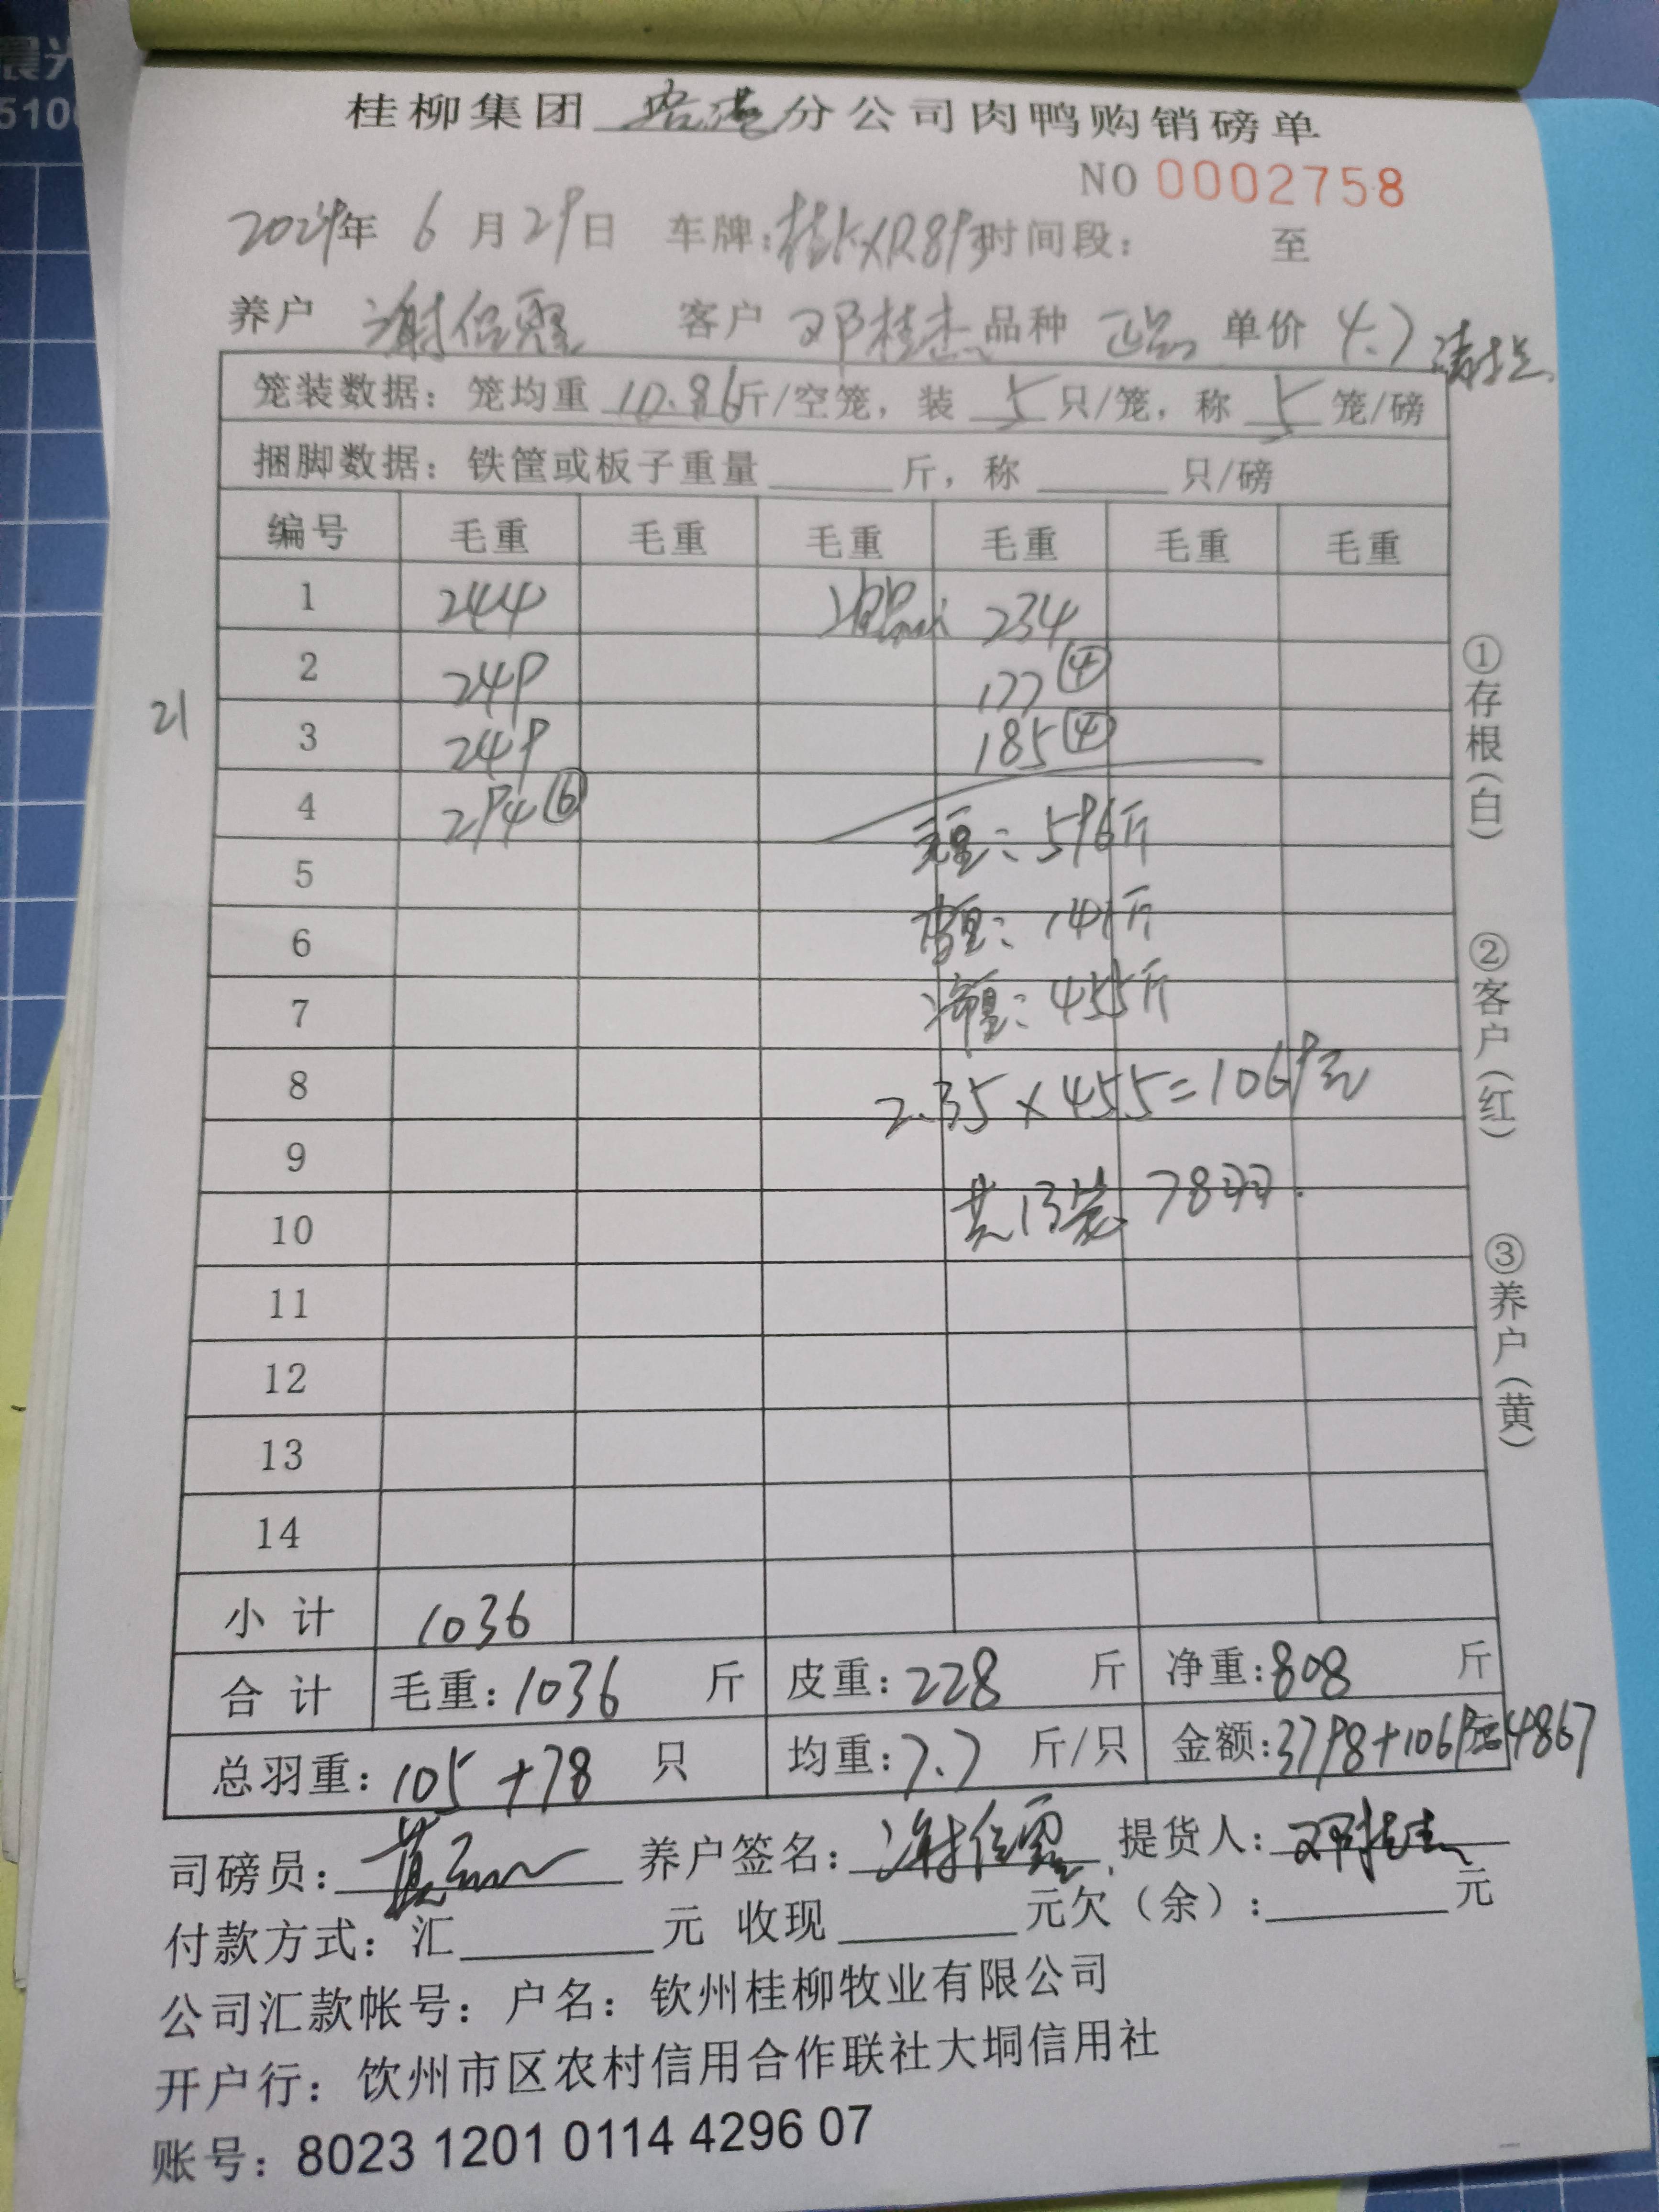 晨光
510
桂柳集团 分公司肉鸭购销磅单
NO 0002758
2024年 6 月 29 日 车牌: 时间段: 至
养户 谢 客户 邓桂杰 品种 正品 单价 4.7 清栏
笼装数据: 笼均重 10.86 斤/空笼, 装 5 只/笼, 称 5 笼/磅
捆脚数据: 铁筐或板子重量 斤, 称 只/磅
编号 毛重 毛重 毛重 毛重 毛重 毛重
1 244 234
2 249 177 ④
21
3 249 185 ④
4 294 ⑥
毛重: 596斤
5
6 皮重: 141斤
7 净重: 455斤
8 2.35×455=1069元
9
10 共13笼 78羽.
11
12
13
14
小计 1036
合计 毛重: 1036 斤 皮重: 228 斤 净重: 808 斤
总羽重: 105+78 只 均重: 7.7 斤/只 金额: 3798+1069元=4867
司磅员: 黄 养户签名: 谢 提货人: 邓桂杰
付款方式: 汇 元 收现 元欠（余）: 元
公司汇款帐号: 户名: 钦州桂柳牧业有限公司
开户行: 钦州市区农村信用合作联社大垌信用社
账号: 8023 1201 0114 4296 07
①存根(白)
②客户(红)
③养户(黄)